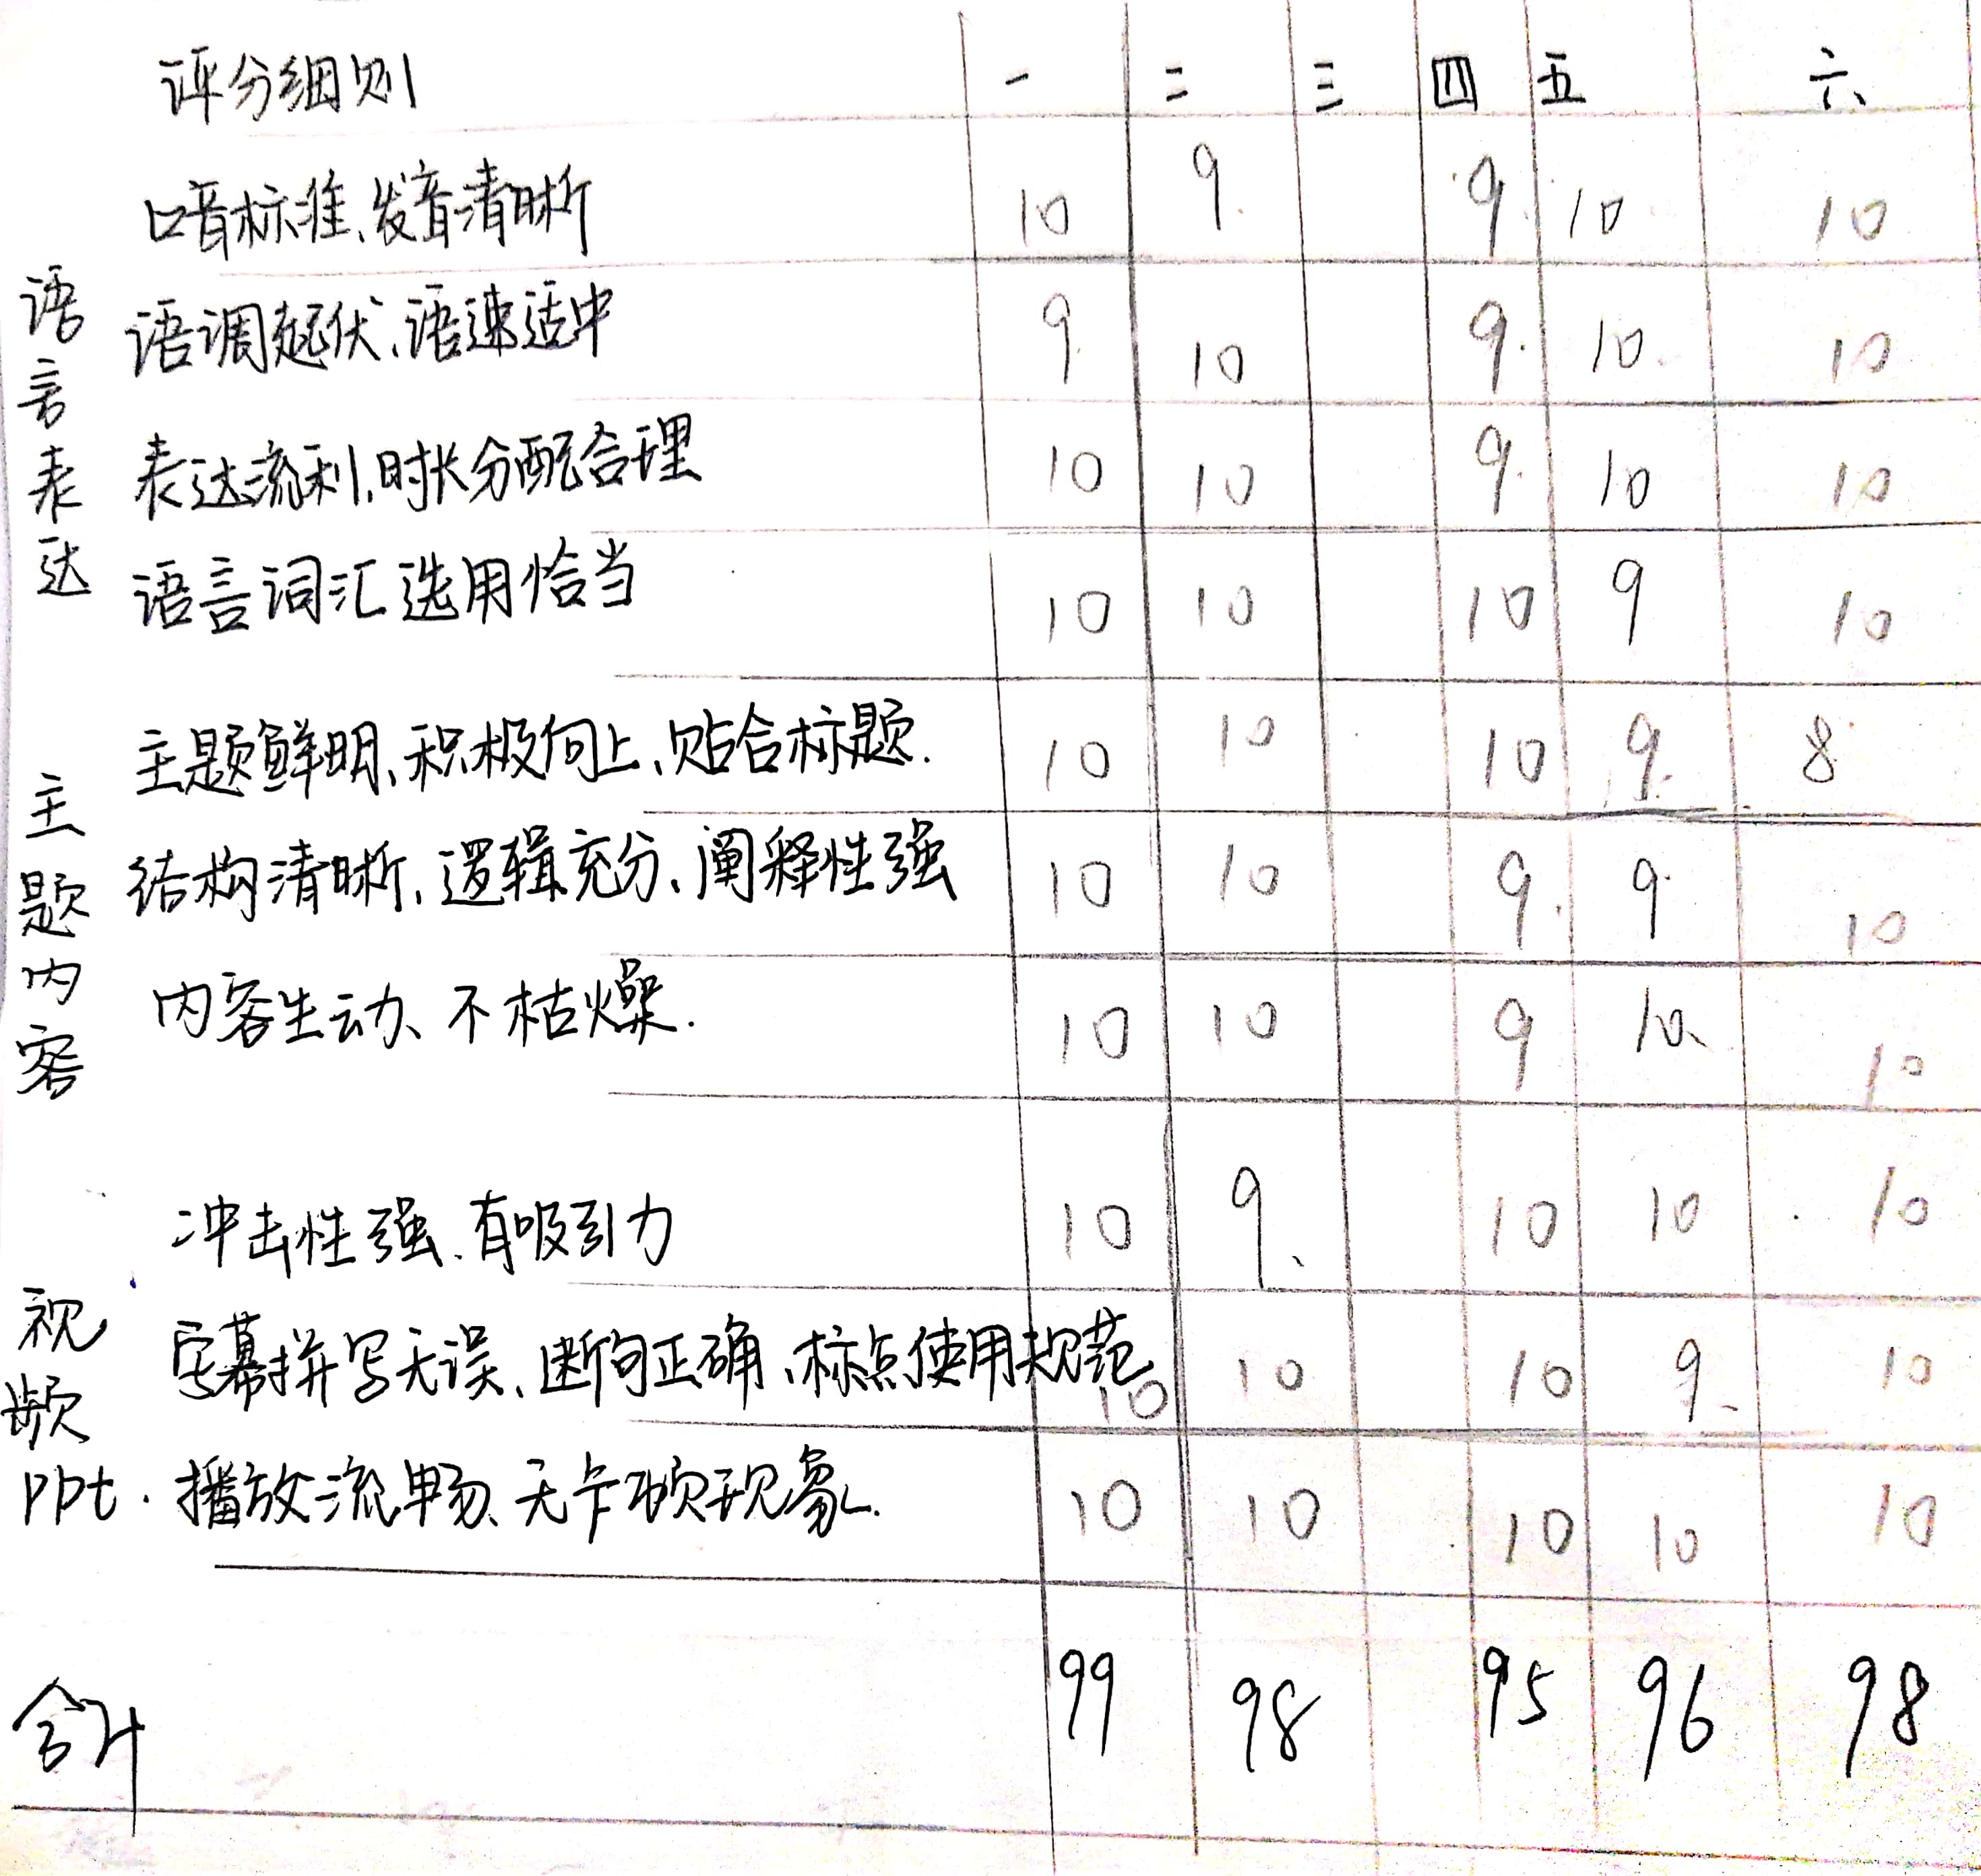 评分细则 一 二 三 四 五 六
语言表达
口音标准、发音清晰 10 9 9 10 10
语调起伏、语速适中 9 10 9 10 10
表达流利、时长分配合理 10 10 9 10 10
语言词汇选用恰当 10 10 10 9 10
主题内容
主题鲜明、积极向上、贴合标题. 10 10 10 9 8
结构清晰、逻辑充分、阐释性强 10 10 9 9 10
内容生动、不枯燥. 10 10 9 10 10
视频PPt.
冲击性强、有吸引力 10 9 10 10 10
字幕拼写无误、断句正确、标点使用规范 10 10 10 9 10
播放流畅、无卡顿现象. 10 10 10 10 10
合计 99 98 95 96 98